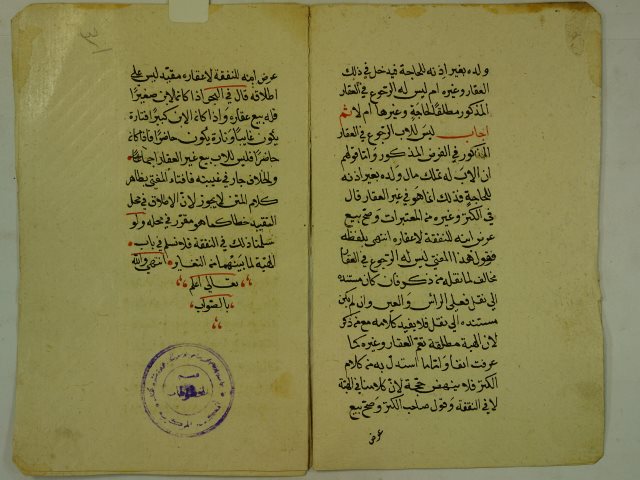 ولده بغير اذنه للحاجة فيدخل في ذلك
العقار وغيره ام ليس له الرجوع في العقار
المذكور مطلقا لحاجة وغيرها ام لا ثم
اجاب ليس للاب الرجوع في العقار
المذكور في الفرض المذكور واما قولهم
ان الاب له تملك مال ولده بغير اذنه
للحاجة فذلك انما هو في غير العقار قال
في الكنز وغيره من المعتبرات وصح بيع
عرض ابنه للنفقة لا عقاره انتهى بلفظه
فقول هذا المفتي ليس له الرجوع في العقار
مخالف لما نقله من ذكر فان كان مستنده
الى نقل فعلى الراس والعين وان لم يكن
مستنده الى نقل فلا يفيد كلامه مع من ذكر
لان الهبة مطلقة تعم العقار وغيره كما
عرفت انفا واما ما استدل به من كلام
الكنز فلا ينهض حجة لان كلامنا في الهبة
لا في النفقة وقول صاحب الكنز وصح بيع
عرض
عرض ابنه للنفقة لا عقاره مقيد ليس على
اطلاقه قال في البحر اذا كان الابن صغيرا
فله بيع عقاره واذا كان الابن كبيرا فتارة
يكون غايبا وتارة يكون حاضرا فان كان
حاضرا فليس للاب بيع غير العقار اجماعا
والخلاف جار في غيبته فافتاء المفتي بظاهر
كلام المتن لا يجوز لان الاطلاق في محل
التقييد خطا كما هو مقرر في محله ولو
سلمنا ذلك في النفقة فلا نسلم في باب
الهبة لما بينهما من التغاير انتهى والله
تعالى اعلم
بالصواب